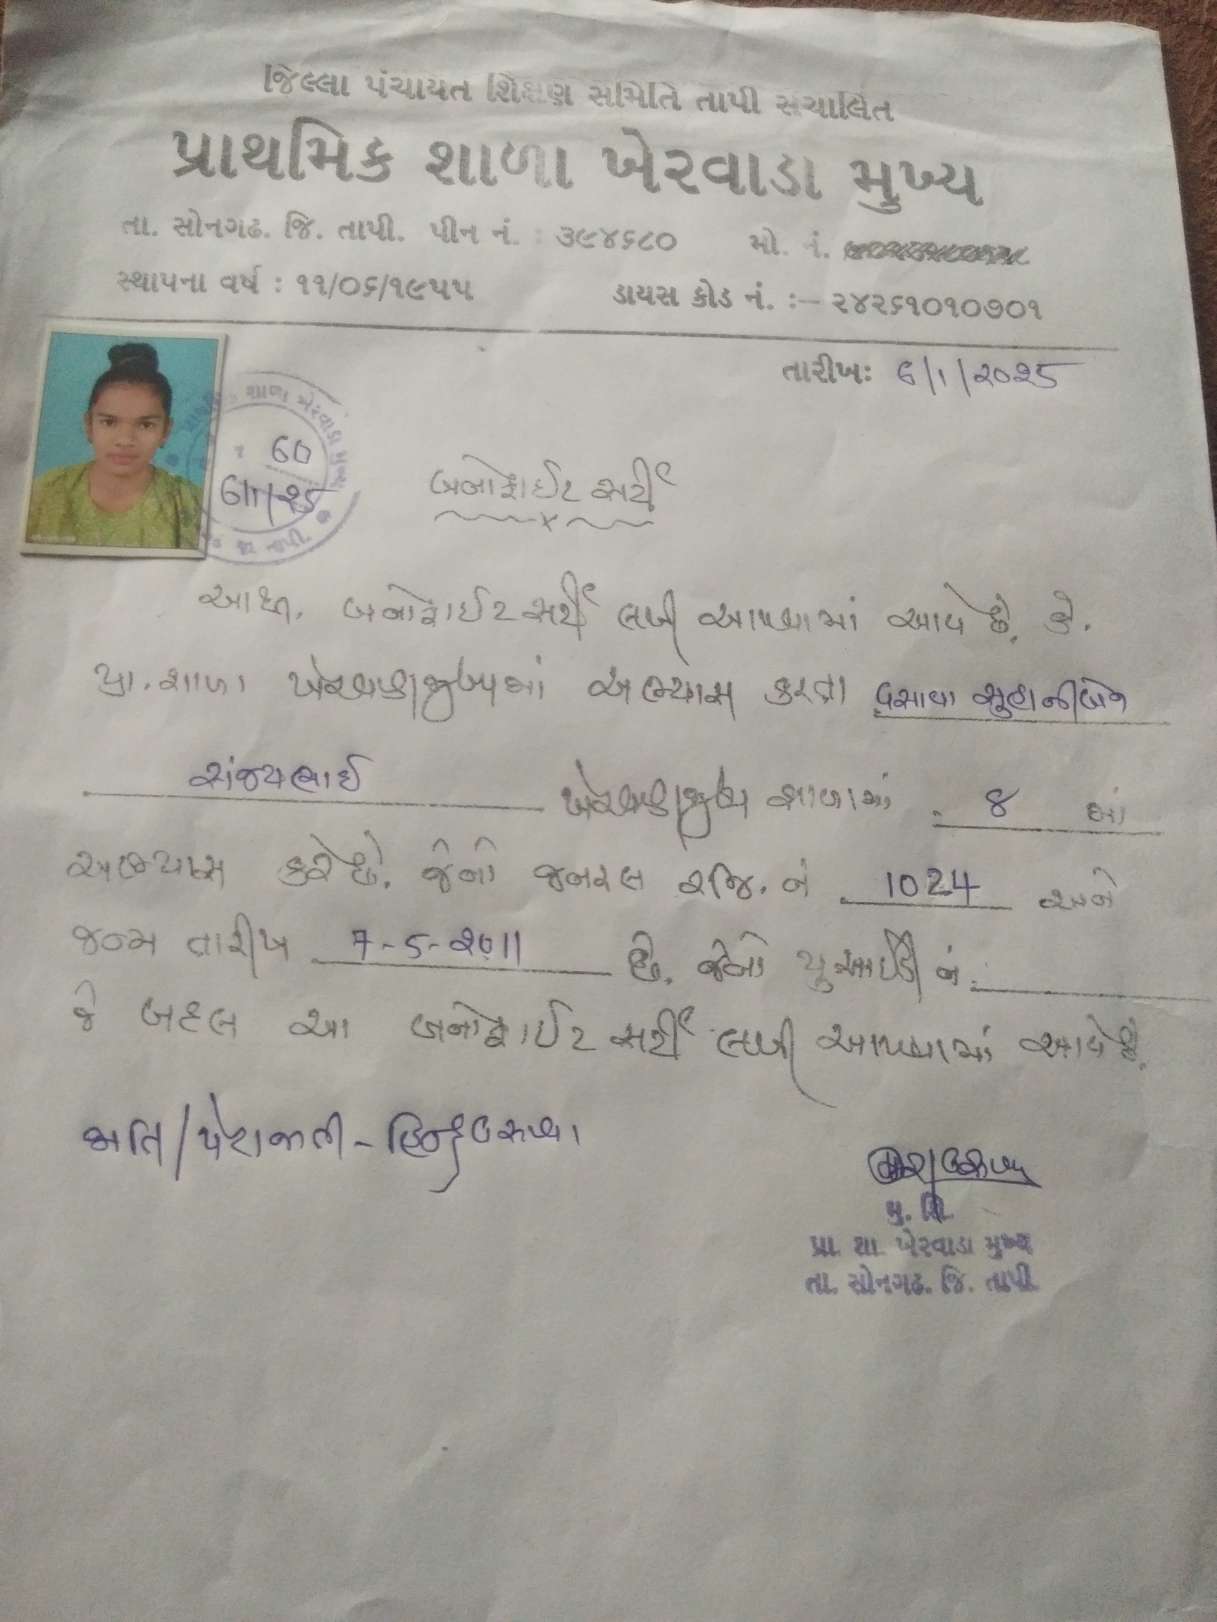 જિલ્લા પંચાયત શિક્ષણ સમિતિ તાપી સંચાલિત
પ્રાથમિક શાળા ખેરવાડા મુખ્ય
તા. સોનગઢ. જિ. તાપી. પીન નં. : ૩૯૪૬૮૦ મો. નં.
સ્થાપના વર્ષ : ૧૧/૦૬/૧૯૫૫ ડાયસ કોડ નં. :– ૨૪૨૬૧૦૧૦૭૦૧
તારીખઃ ૬/૧/૨૦૨૫
શાળા ખેરવાડા મુખ્ય
60
6/1/૨૫
તાપી.
બનોફાઈટ સર્ટી
આથી. બનોફાઈટ સર્ટી લખી આપવામાં આવે છે. કે.
પ્રા. શાળા ખેરવાડા મુખ્યમાં અભ્યાસ કરતા વસાવા સુહાનીબેન
સંજયભાઈ ખેરવાડા મુખ્ય શાળામાં ૪ માં
અભ્યાસ કરે છે. જેનો જનરલ રજિ. નં 1024 અને
જન્મ તારીખ 7-5-૨૦11 છે. જેનો યુઆઈડી નં.
જે બદલ આ બનોફાઈટ સર્ટી લખી આપવામાં આવે છે.
જાતિ/પેટાજાતી - હિન્દુ વસાવા
મુ. શિ.
પ્રા. શા. ખેરવાડા મુખ્ય
તા. સોનગઢ. જિ. તાપી.